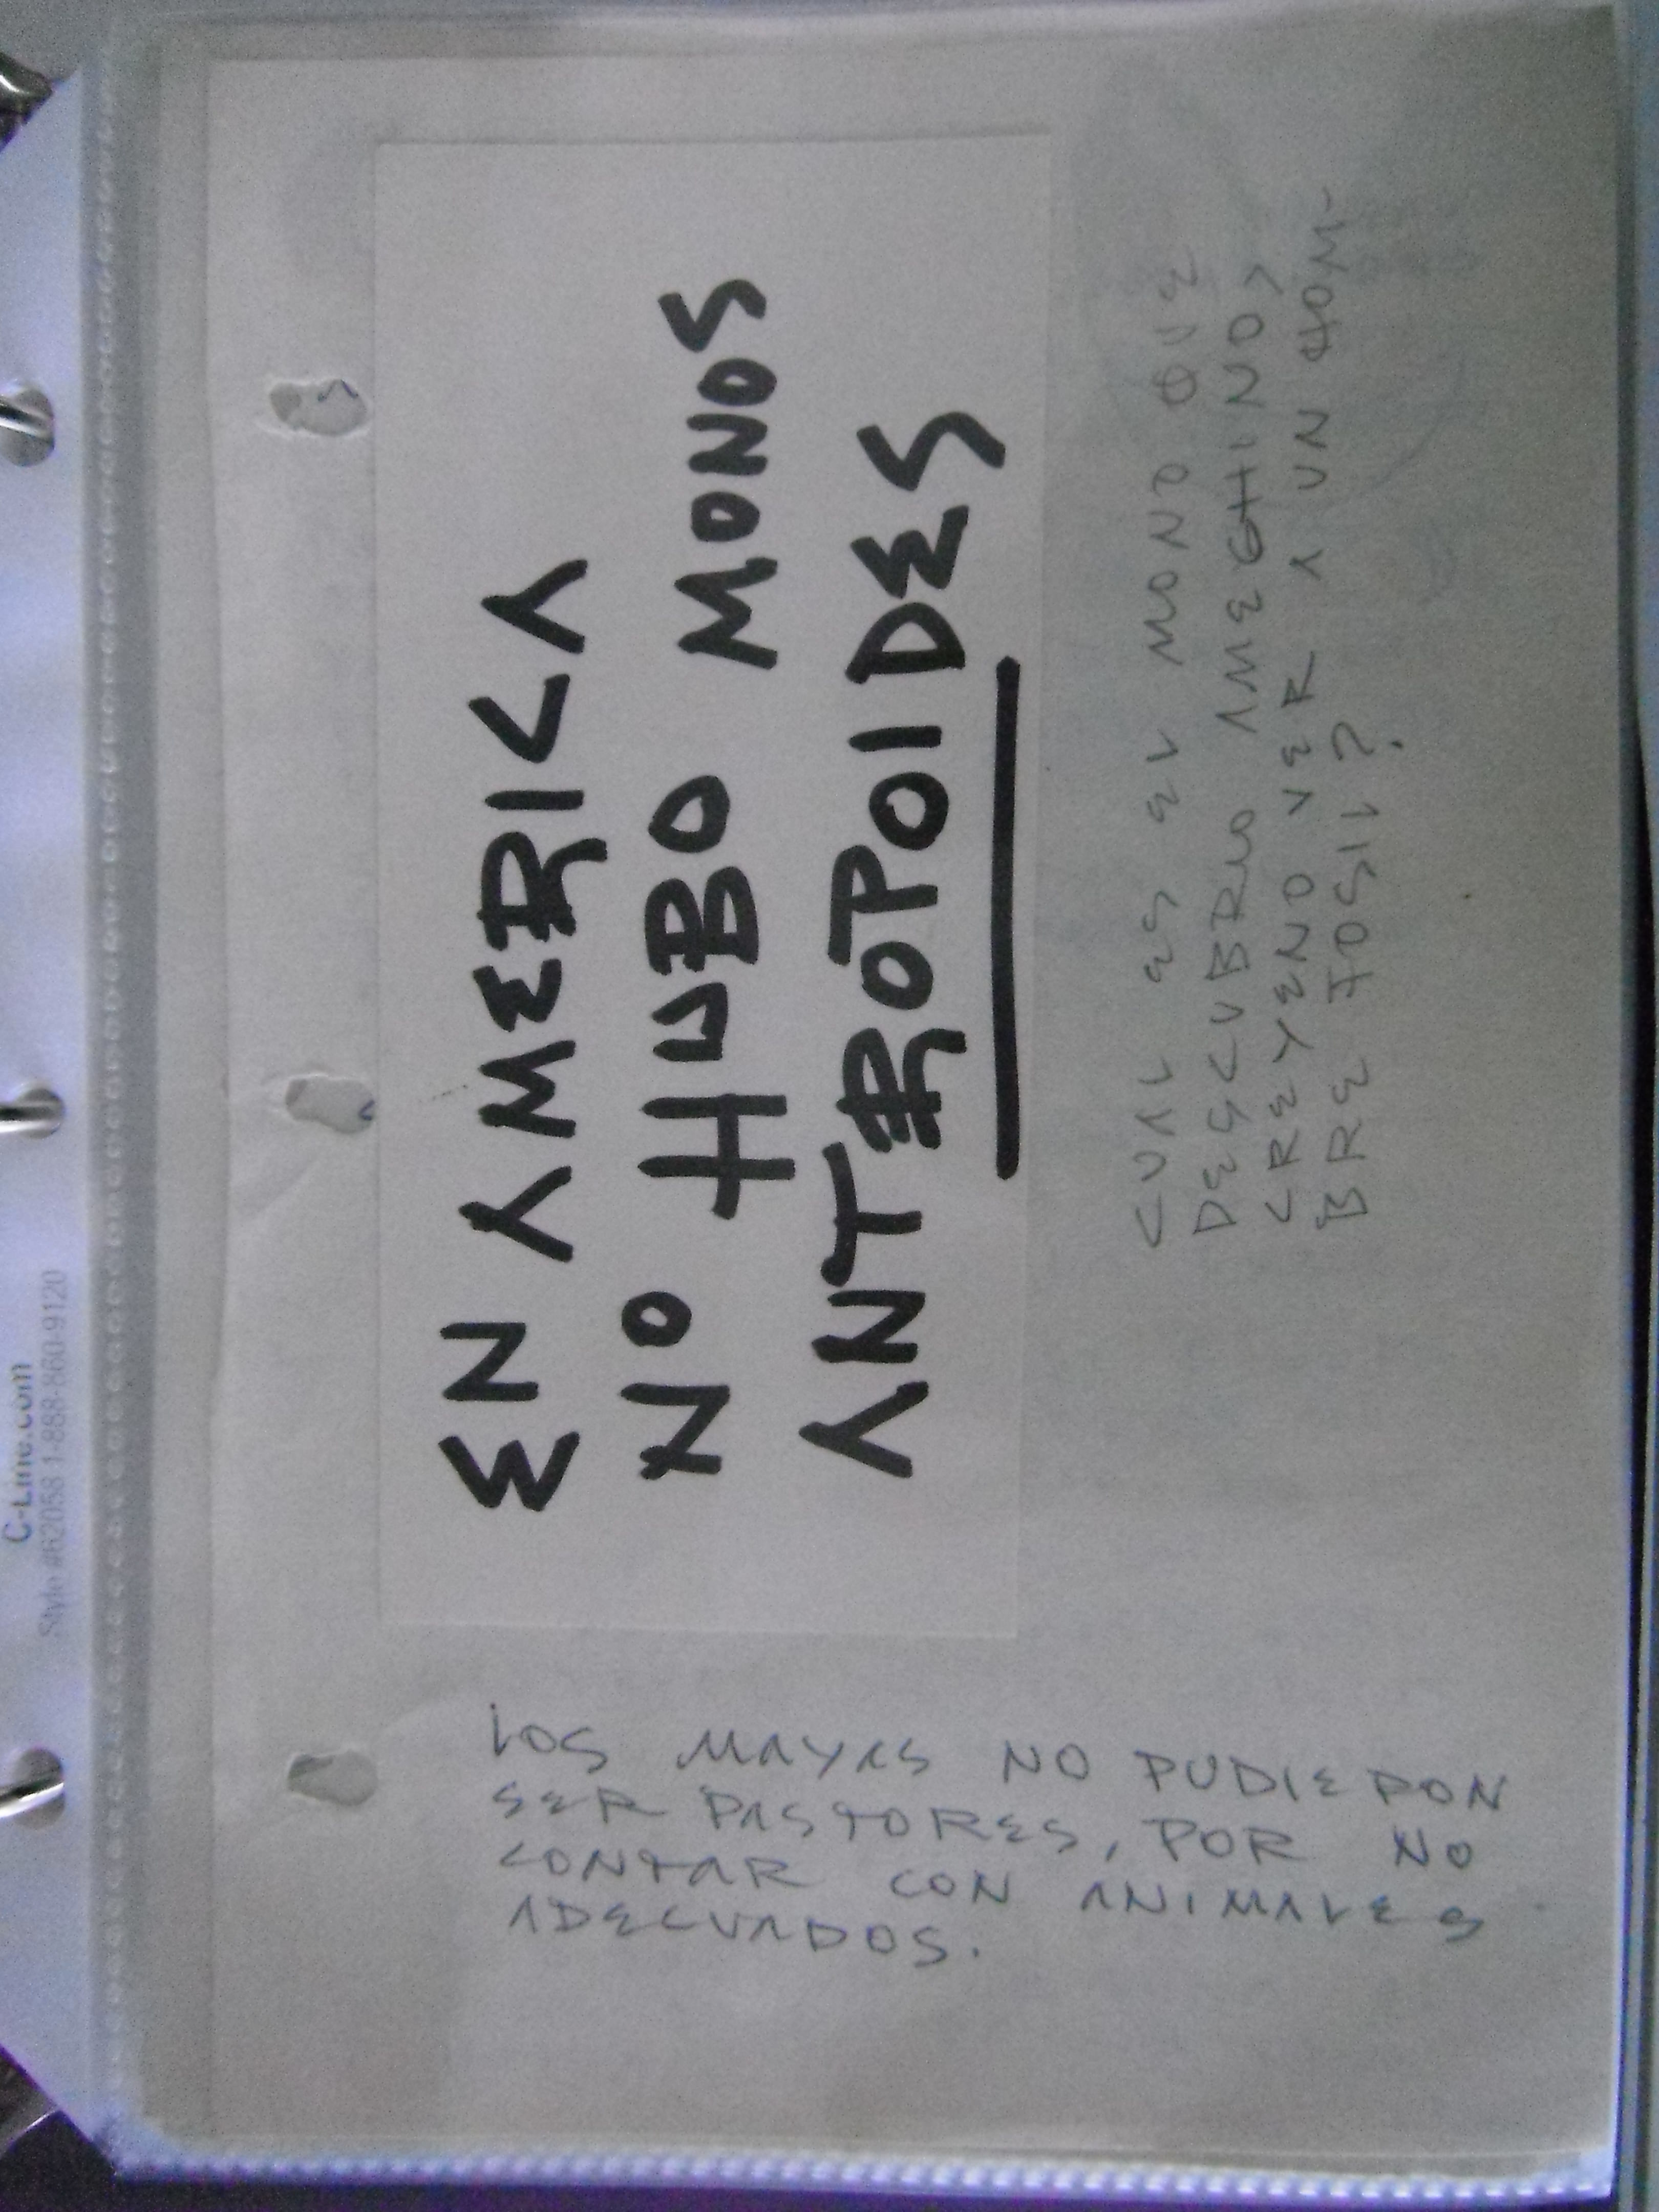 C-Line.com
Style #62058 1-888-860-9120
EN AMERICA
NO HUBO MONOS
ANTROPOIDES
CUAL ES EL MONO QUE
DESCUBRIO AMEGHINO,
CREYENO VER A UN HOM-
BRE FOSIL?
LOS MAYAS NO PUDIERON
SER PASTORES, POR NO
CONTAR CON ANIMALES
ADECUADOS.